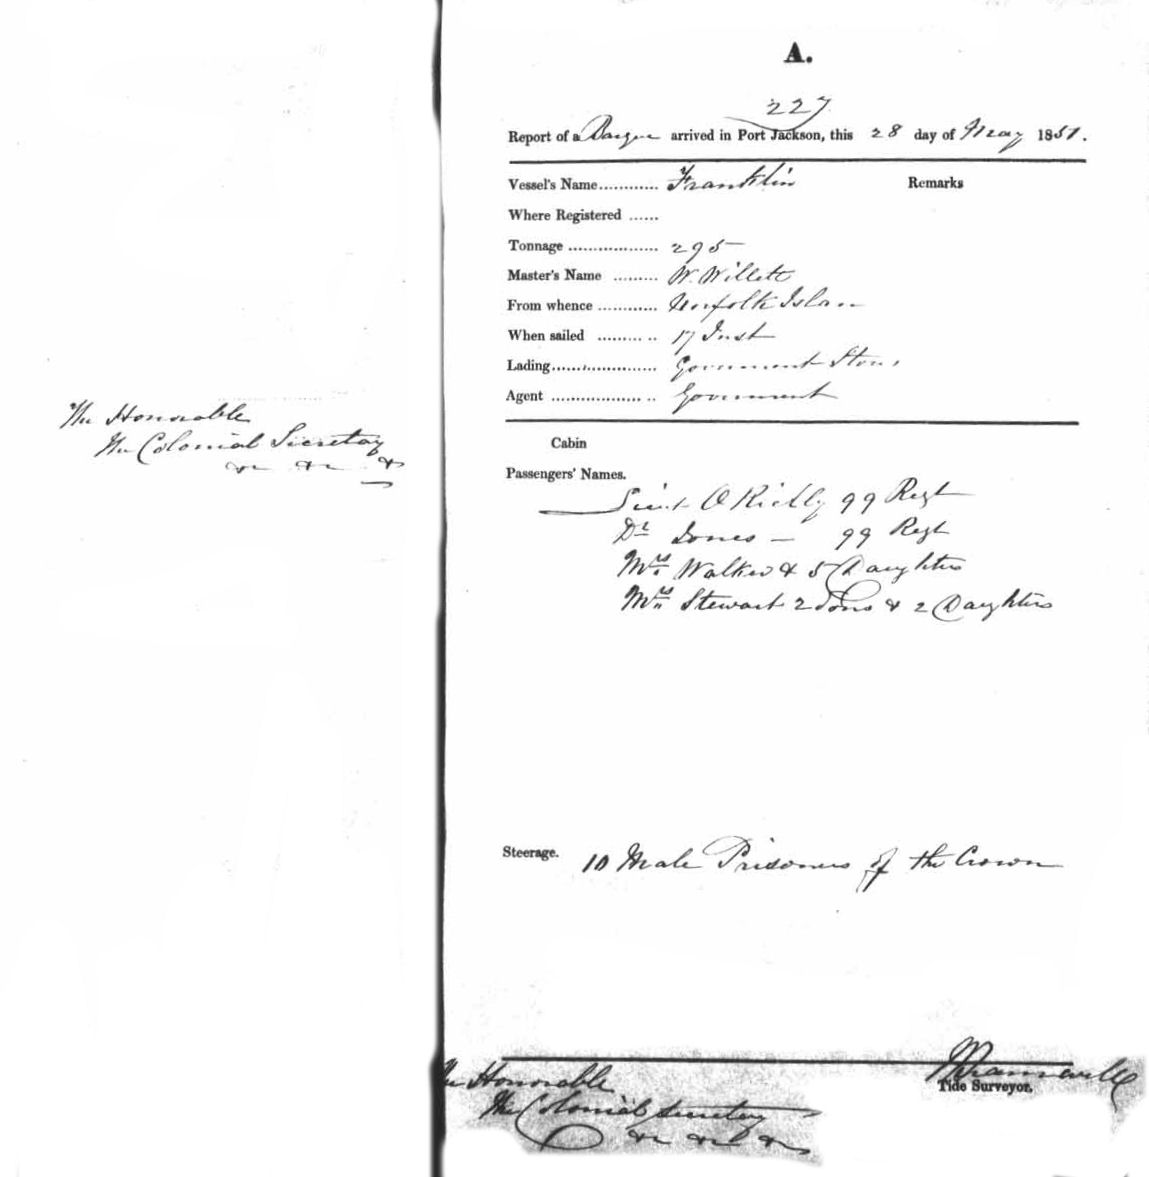 The Honorable
The Colonial Secretary
&c &c &c
A.
227
Report of a Barque arrived in Port Jackson, this 28 day of May 1851.
Vessel's Name............ Franklin Remarks
Where Registered ......
Tonnage .................. 295
Master's Name ......... W. Willett
From whence ............ Norfolk Islan
When sailed ......... .. 17 Inst
Lading..................... Government Stores
Agent .................. .. Government
Cabin
Passengers' Names.
Lieut O Rielly 99 Regt
Dr Jones — 99 Regt
Mrs Walker & 5 Daughters
Mrs Stewart 2 Sons & 2 Daughters
Steerage. 10 Male Prisoners of the Crown
The Honorable
The Colonial Secretary
&c &c &c
Tide Surveyor.